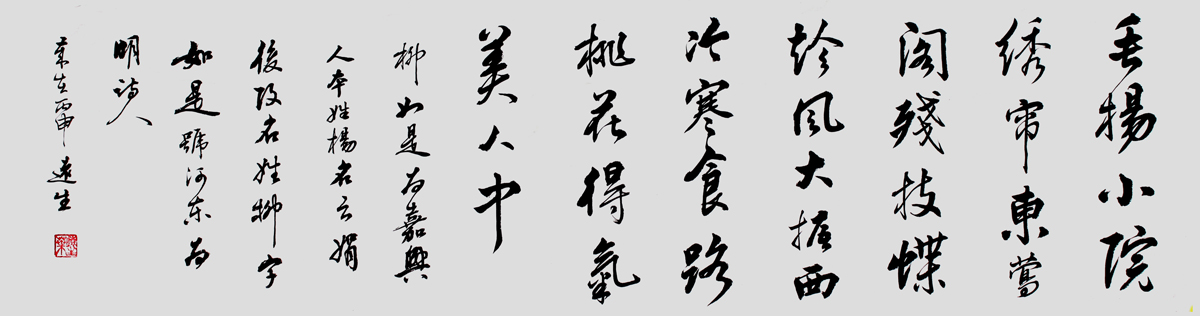 垂楊小院
绣帘東鶯
阁殘枝蝶
趁風大抵西
冷寒食路
桃花得氣
美人中
柳如是为嘉興
人本姓楊名云娟
後改名姓柳字
如是號河东为
明诗人
丙申生